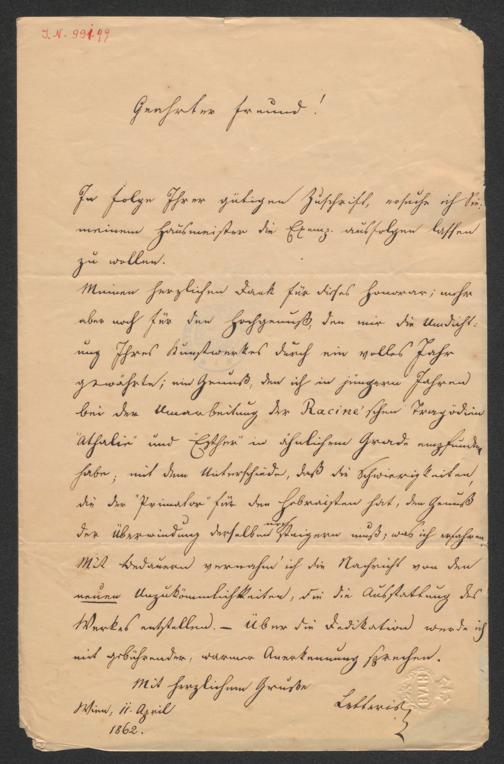 J.N. 99199
Geehrter Freund!
In Folge Ihrer gütigen Zuschrift, ersuche ich Sie
meinem Hausmeister die Exempl. ausfolgen lassen
zu wollen.
Meinen herzlichen Dank für dieses Honorar; mehr
aber noch für den Hochgenuß, den mir die Umdicht-
ung Ihres Kunstwerkes durch ein volles Jahr
gewährte; ein Genuß, den ich in jüngern Jahren
bei der Umarbeitung der Racine'schen Tragödien
"Athalie" und "Esther" in ähnlichem Grade empfunden
habe; mit dem Unterschiede, daß die Schwierigkeiten,
die der "Primator" für den Hebraisten hat, den Genuß
der Überwindung derselben steigern muß; was ich erfahren.
Mit Bedauern vernahm' ich die Nachricht von den
neuen Unzukömmlichkeiten, die die Ausstattung des
Werkes entstellen. – Über die Dedikation werde ich
mit gebührender, warmer Anerkennung sprechen.
Mit herzlichem Gruße
Letteris
Wien, 11. April
1862.